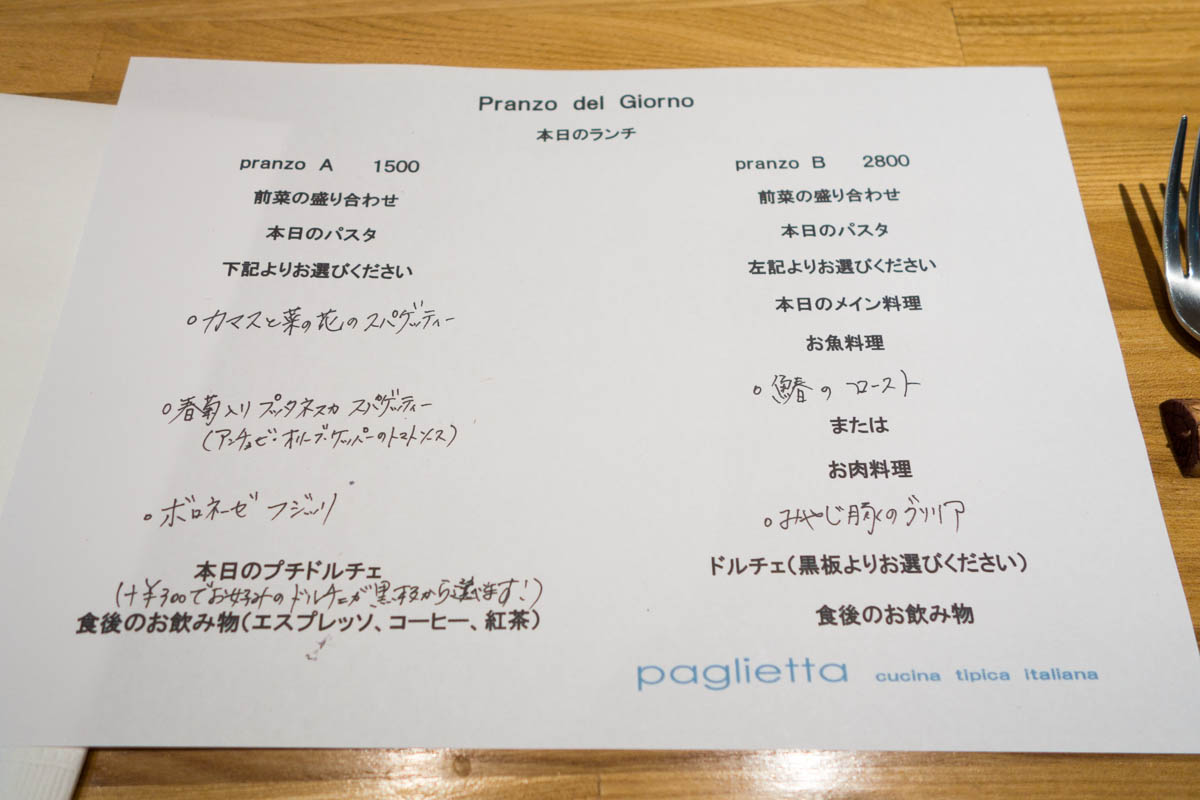 Pranzo del Giorno
本日のランチ
pranzo A 1500
前菜の盛り合わせ
本日のパスタ
下記よりお選びください
○カマスと菜の花のスパゲッティー
○春菊入りプッタネスカ スパゲッティー
(アンチョビ・オリーブ・ケッパーのトマトソース)
○ボロネーゼ フジッリ
本日のプチドルチェ
(+¥300でお好みのドルチェが黒板から選べます!)
食後のお飲み物(エスプレッソ、コーヒー、紅茶)
pranzo B 2800
前菜の盛り合わせ
本日のパスタ
左記よりお選びください
本日のメイン料理
お魚料理
○鰆のロースト
または
お肉料理
○みやじ豚のグリリア
ドルチェ(黒板よりお選びください)
食後のお飲み物
paglietta cucina tipica italiana